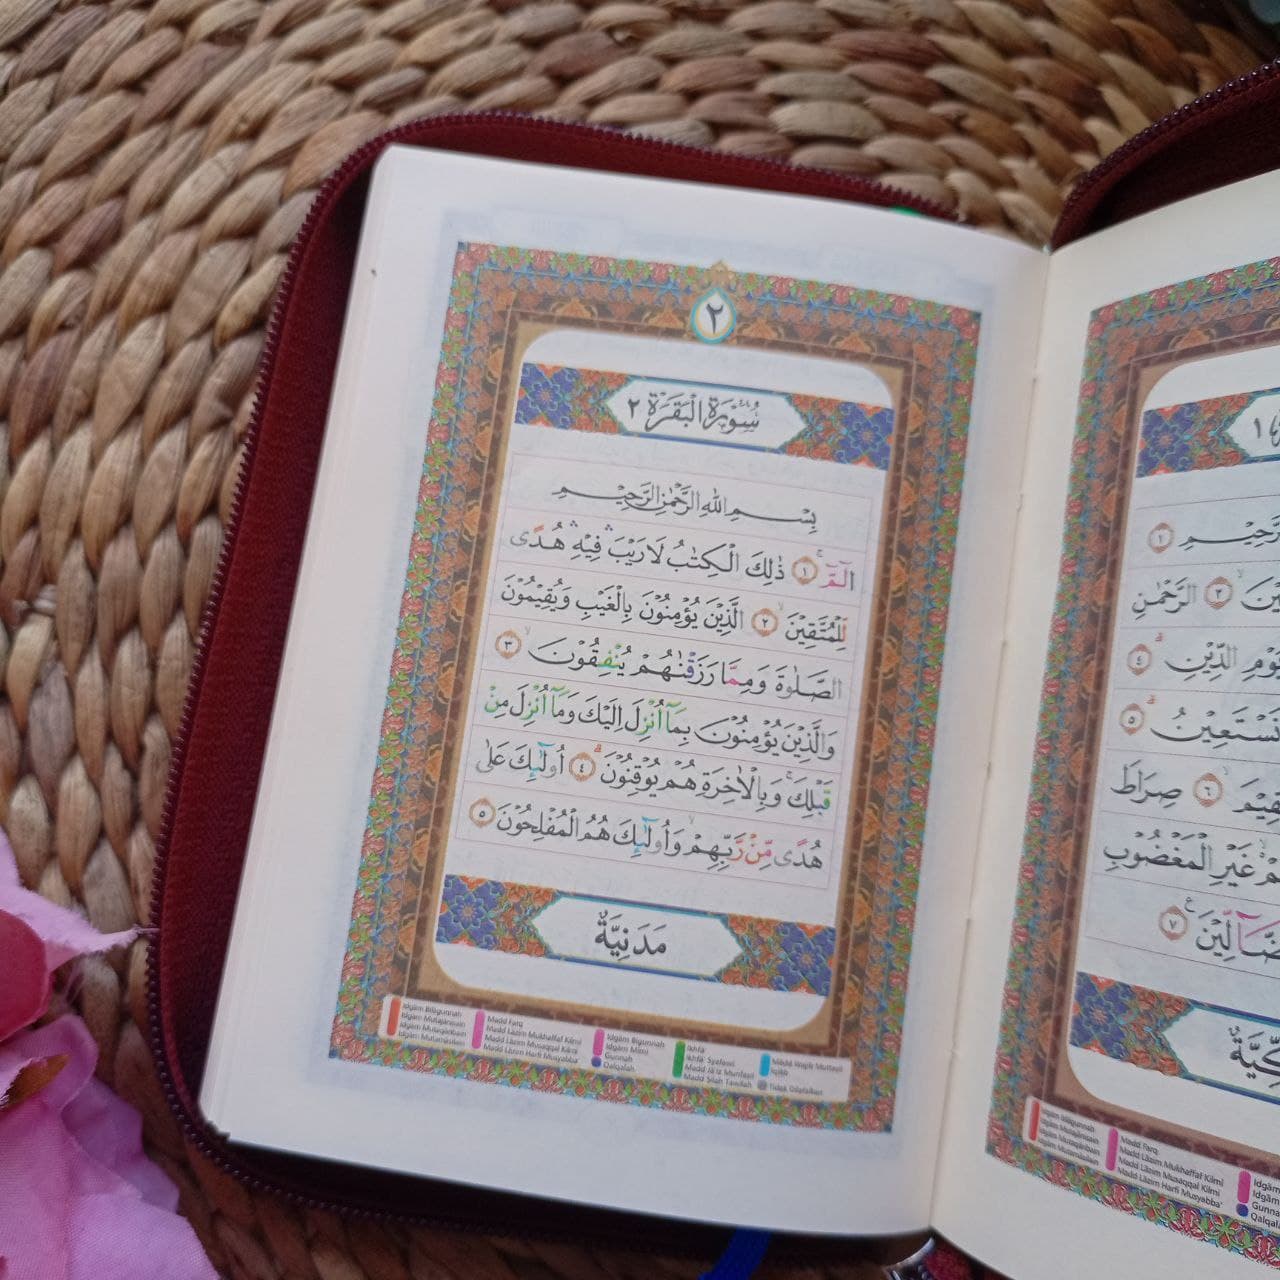 ٢
سُوْرَةُ الْبَقَرَةِ ٢
بِسْمِ اللّٰهِ الرَّحْمٰنِ الرَّحِيْمِ
الۤمّۤۚ ١ ذٰلِكَ الْكِتٰبُ لَا رَيْبَۛ فِيْهِۛ هُدًى
لِّلْمُتَّقِيْنَۙ ٢ الَّذِيْنَ يُؤْمِنُوْنَ بِالْغَيْبِ وَيُقِيْمُوْنَ
الصَّلٰوةَ وَمِمَّا رَزَقْنٰهُمْ يُنْفِقُوْنَۙ ٣
وَالَّذِيْنَ يُؤْمِنُوْنَ بِمَآ اُنْزِلَ اِلَيْكَ وَمَآ اُنْزِلَ مِنْ
قَبْلِكَۚ وَبِالْاٰخِرَةِ هُمْ يُوْقِنُوْنَۗ ٤ اُولٰۤىِٕكَ عَلٰى
هُدًى مِّنْ رَّبِّهِمْۙ وَاُولٰۤىِٕكَ هُمُ الْمُفْلِحُوْنَ ٥
مَدَنِيَّةٌ
Idgām Bilāgunnah
Idgām Mutajānisain
Idgām Mutaqāribain
Idgām Mutamāṡilain
Madd Farq
Madd Lāzim Mukhaffaf Kilmī
Madd Lāzim Muṡaqqal Kilmī
Madd Lāzim Harfī Musyabba'
Idgām Bigunnah
Idgām Mimi
Gunnah
Qalqalah
Ikhfā
Ikhfā' Syafawi
Madd Jā'iz Munfaṣil
Madd Ṣilah Ṭawīlah
Madd Wajib Muttaṣil
Iqlāb
Tidak Dilafalkan
١
٢
٣ الرَّحْمٰنِ
يَوْمِ الدِّيْنِۗ ٤
نَسْتَعِيْنُۗ ٥
٦ صِرَاطَ
غَيْرِ الْمَغْضُوْبِ
٧
Idgām Bilāgunnah
Idgām Mutajānisain
Idgām Mutaqāribain
Idgām Mutamāṡilain
Madd Farq
Madd Lāzim Mukhaffaf Kilmī
Madd Lāzim Muṡaqqal Kilmī
Madd Lāzim Harfī Musyabba'
Idgām
Idgām
Gunna
Qalqala